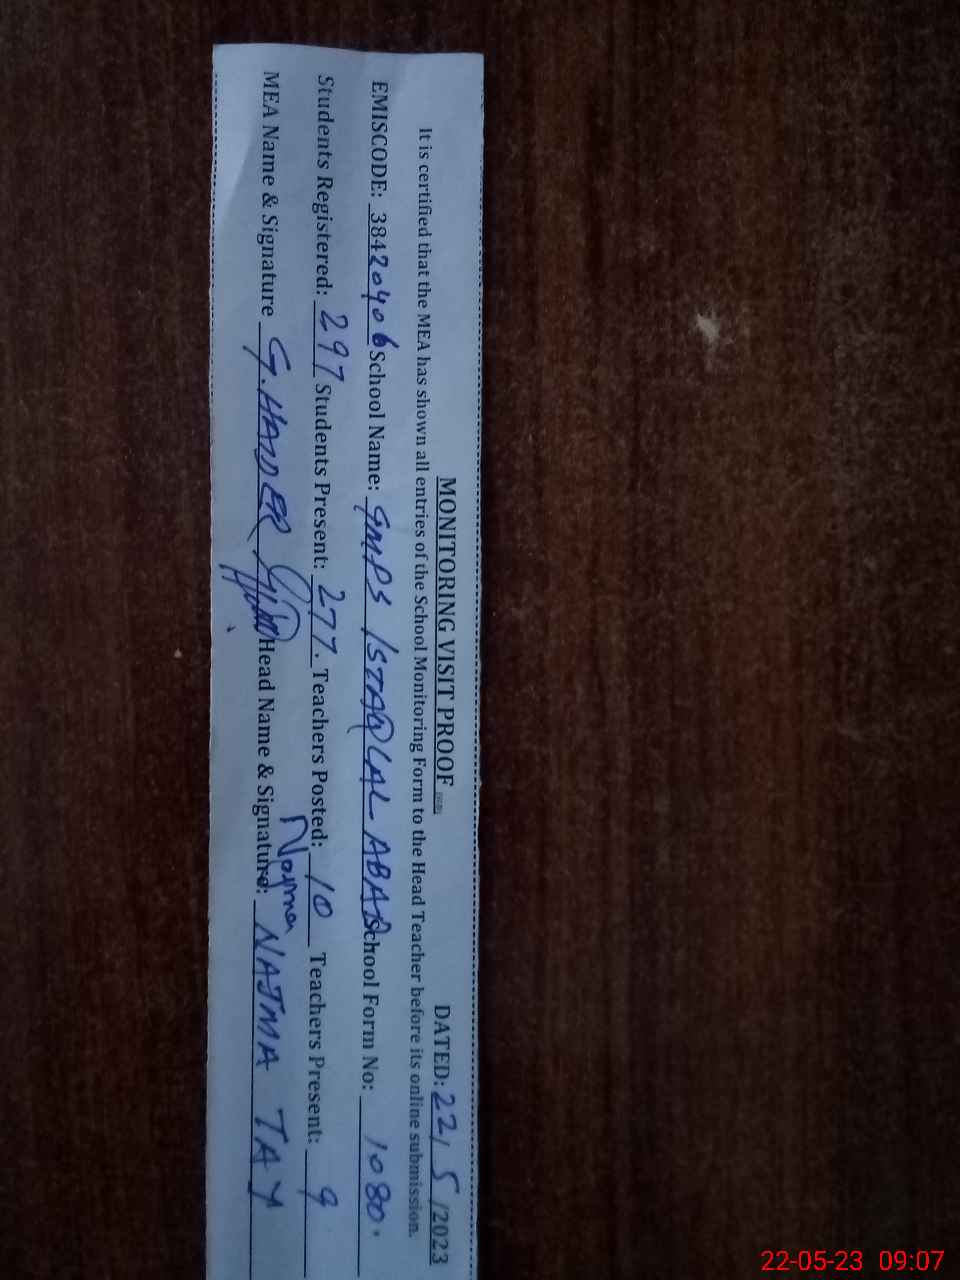 MONITORING VISIT PROOF DATED: 22/5/2023
It is certified that the MEA has shown all entries of the School Monitoring Form to the Head Teacher before its online submission.
EMISCODE: 38420406 School Name: GMPS ISTAQLAL ABAD School Form No: 1080.
Students Registered: 297 Students Present: 277. Teachers Posted: 10 Teachers Present: 9
MEA Name & Signature G. HAIDER Head Name & Signature: Najma NAJMA TAJ
22-05-23 09:07